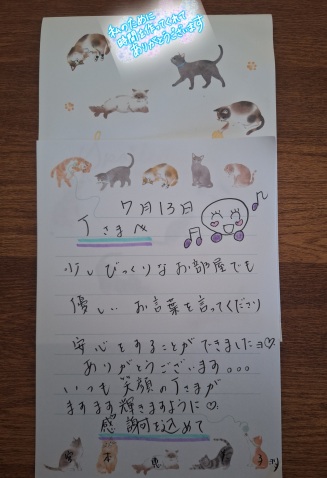 私のために
時間を作ってくれて
ありがとうございます
7月13日
Tさまへ
少しびっくりなお部屋でも
優しい お言葉を言ってくださり
安心をすることができましたヨ♡
ありがとうございます。。。
いつも笑顔のTさまが
ますます輝きますように♡
感謝を込めて